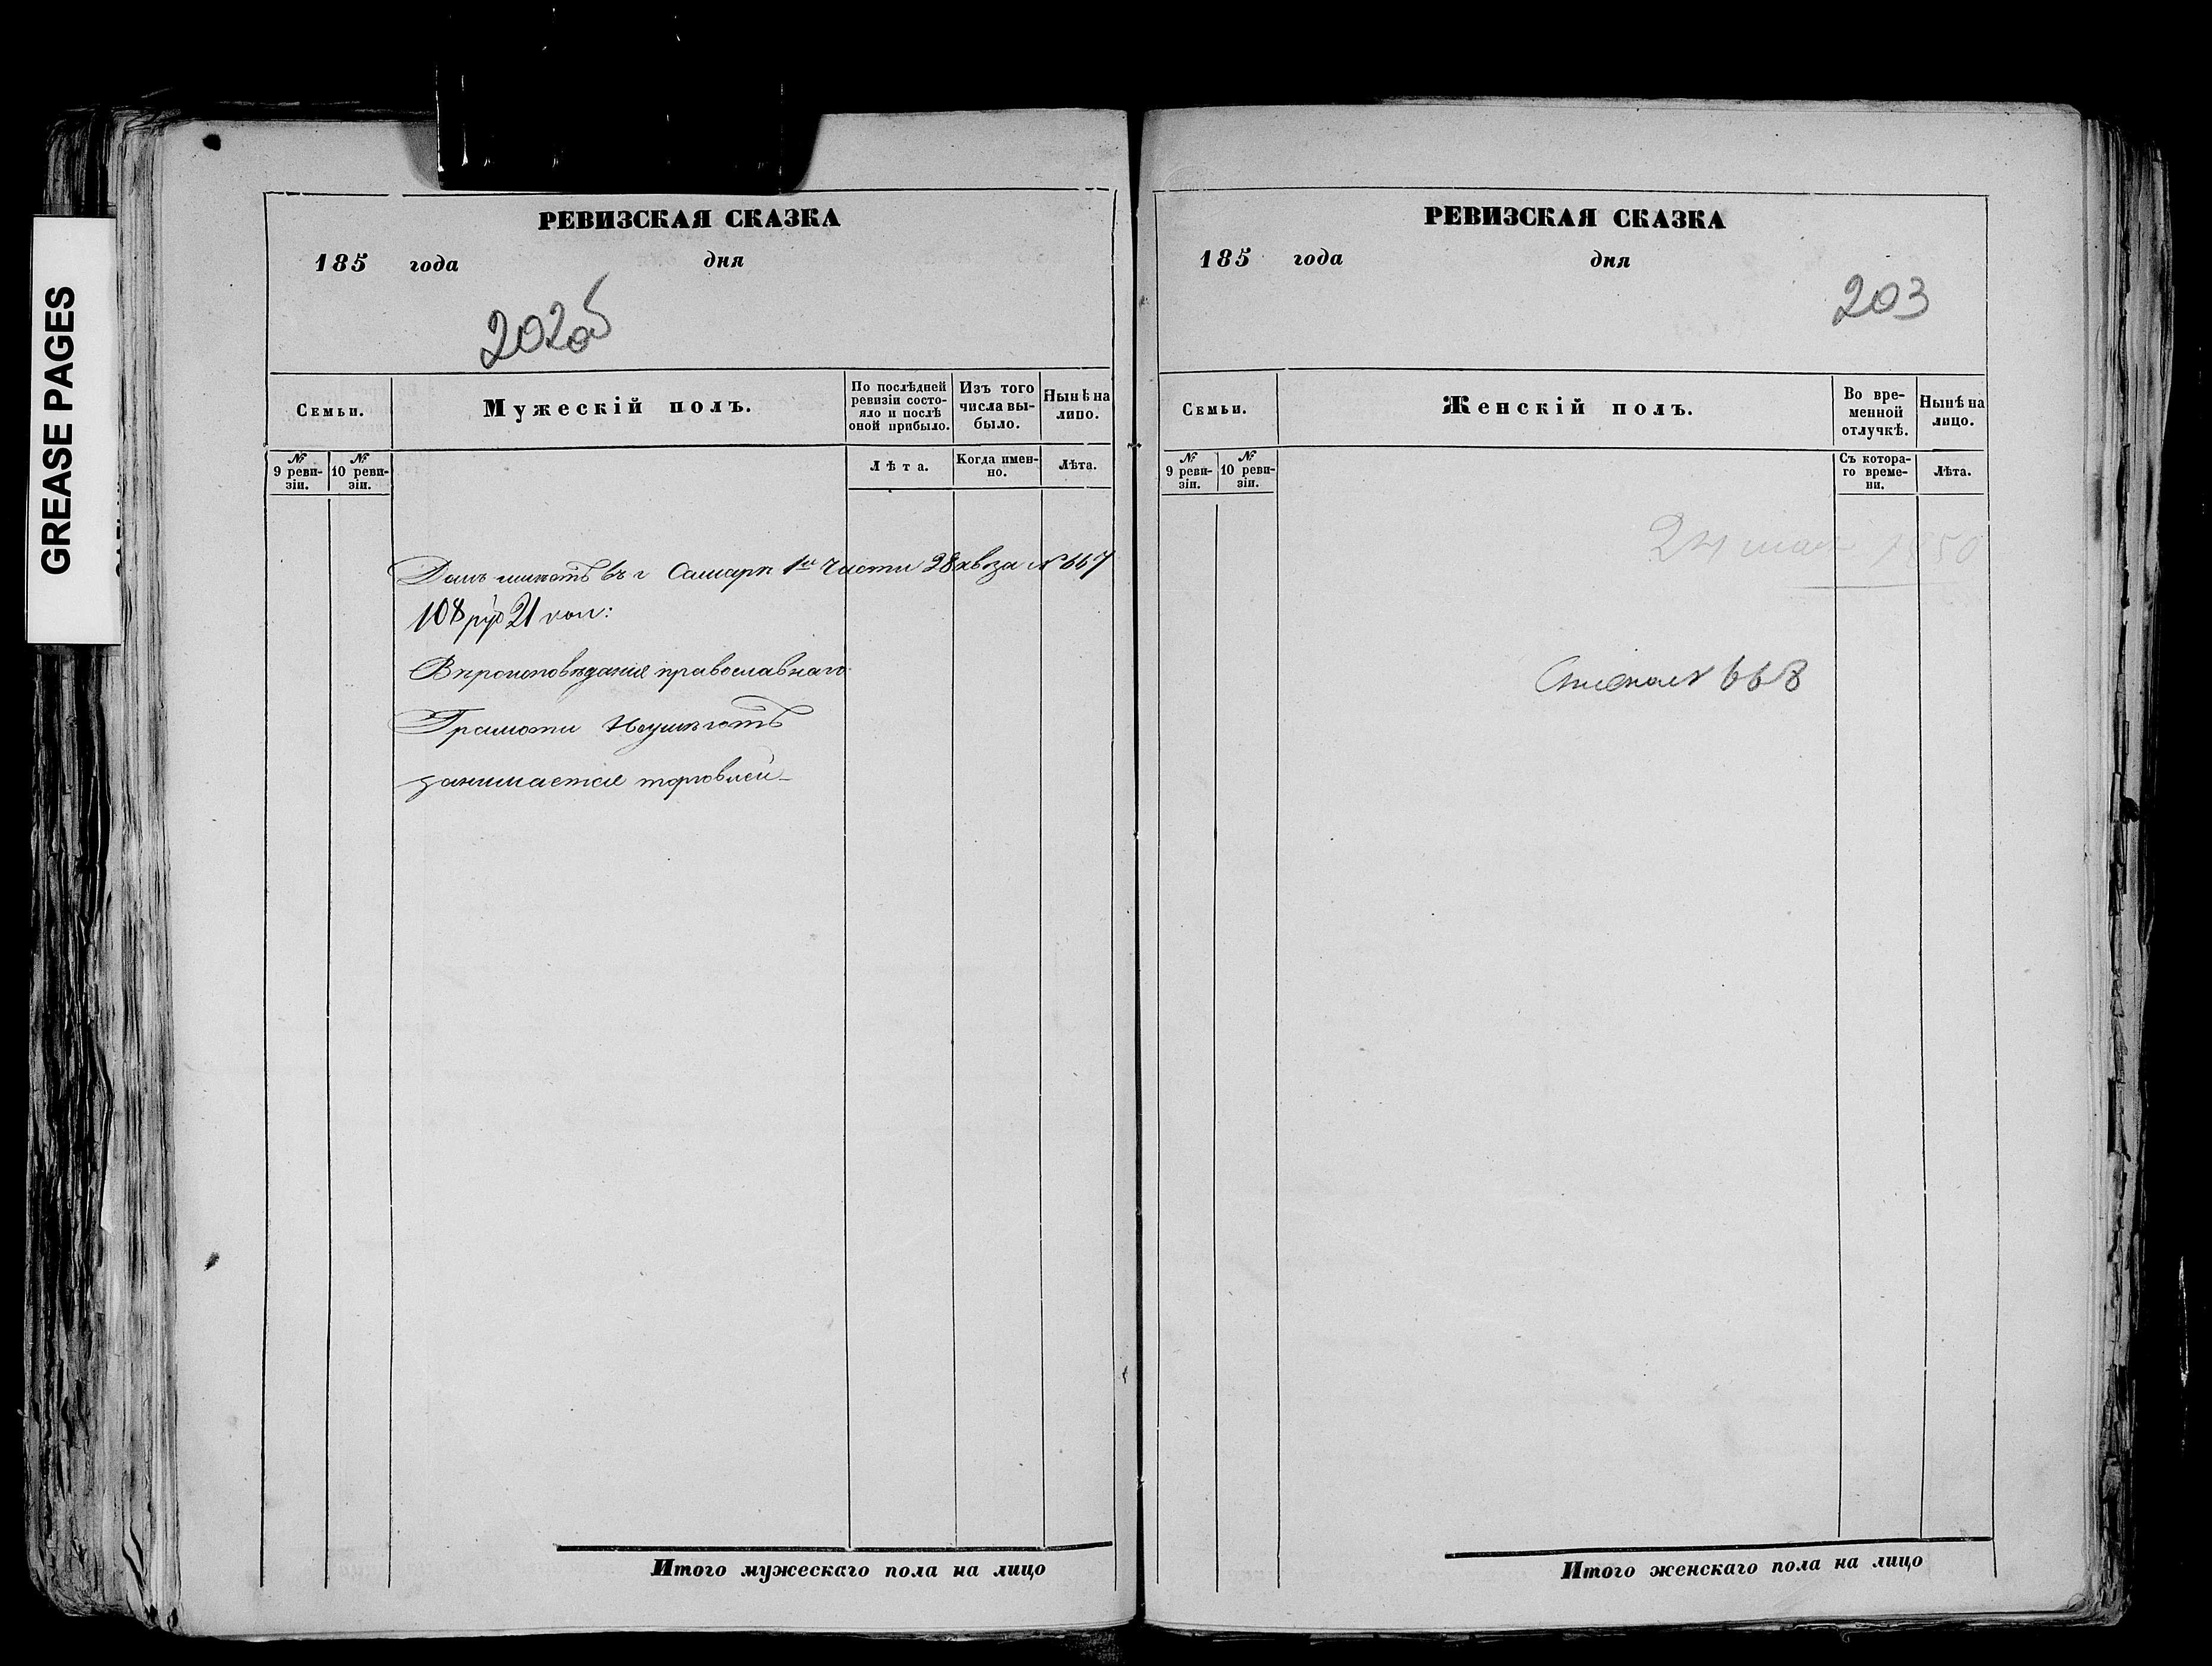 GREASE PAGES
РЕВИЗСКАЯ СКАЗКА
185 года дня
202об
Семьи.
Мужескій полъ.
По послѣдней ревизіи состояло и послѣ оной прибыло.
Изъ того числа выбыло.
Нынѣ на лицо.
№ 9 ревизіи.
№ 10 ревизіи.
Лѣта.
Когда именно.
Лѣта.
Домъ имѣетъ въ г Самарѣ 1й Части 28 квза № 667
108 руб 21 коп:
Вѣроисповѣданія православнаго
Грамоти Неумѣетъ
занимается торговлей
Итого мужескаго пола на лицо
РЕВИЗСКАЯ СКАЗКА
185 года дня
203
Семьи.
Женскій полъ.
Во временной отлучкѣ.
Нынѣ на лицо.
№ 9 ревизіи.
№ 10 ревизіи.
Съ котораго времени.
Лѣта.
24 1850
668
Итого женскаго пола на лицо